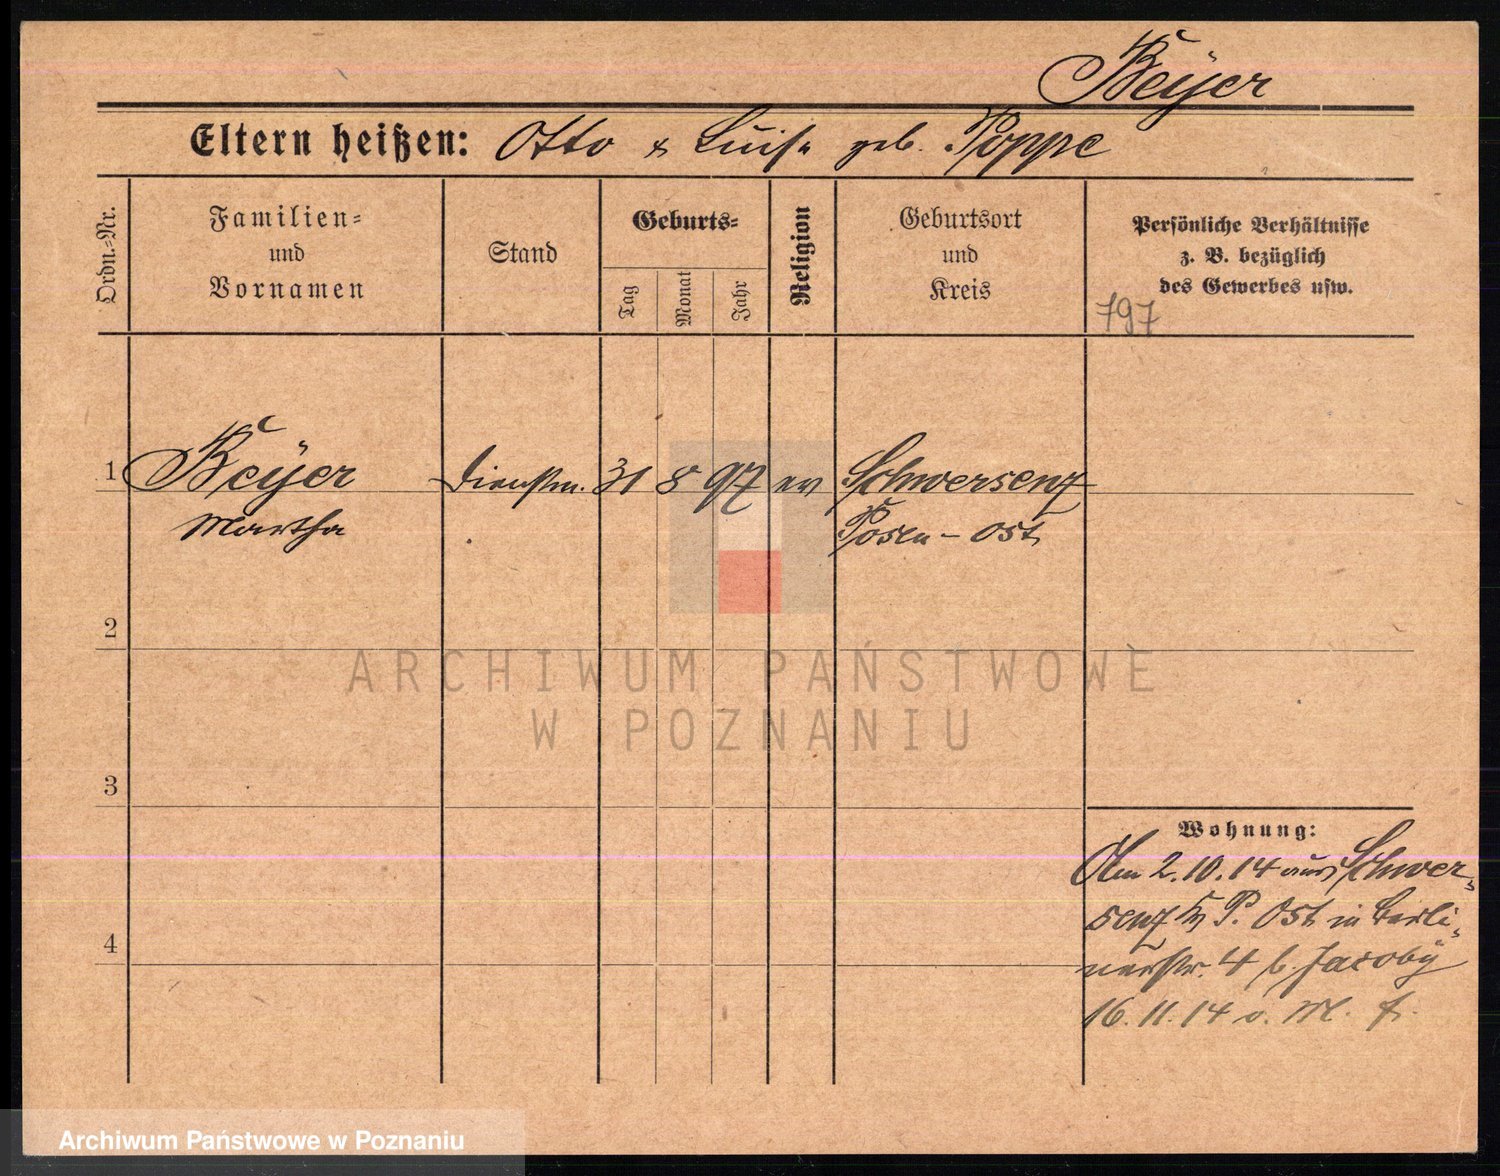 Beÿer
Eltern heißen: Otto & Luise geb. Poppe
Ordn.-Nr.
Familien-
und
Vornamen
Stand
Geburts-
Tag
Monat
Jahr
Religion
Geburtsort
und
Kreis
Persönliche Verhältnisse
z. B. bezüglich
des Gewerbes usw.
797
1 Beÿer Dienstm. 31 8 97 ev Schwersenz
Martha Posen-Ost
2
ARCHIWUM PAŃSTWOWE
W POZNANIU
3
Wohnung:
Am 2.10.14 aus Schwer-
senz Kr P. Ost in Berli-
nerstr. 4 b. Jacoby
4
16.11.14 v. M.
Archiwum Państwowe w Poznaniu